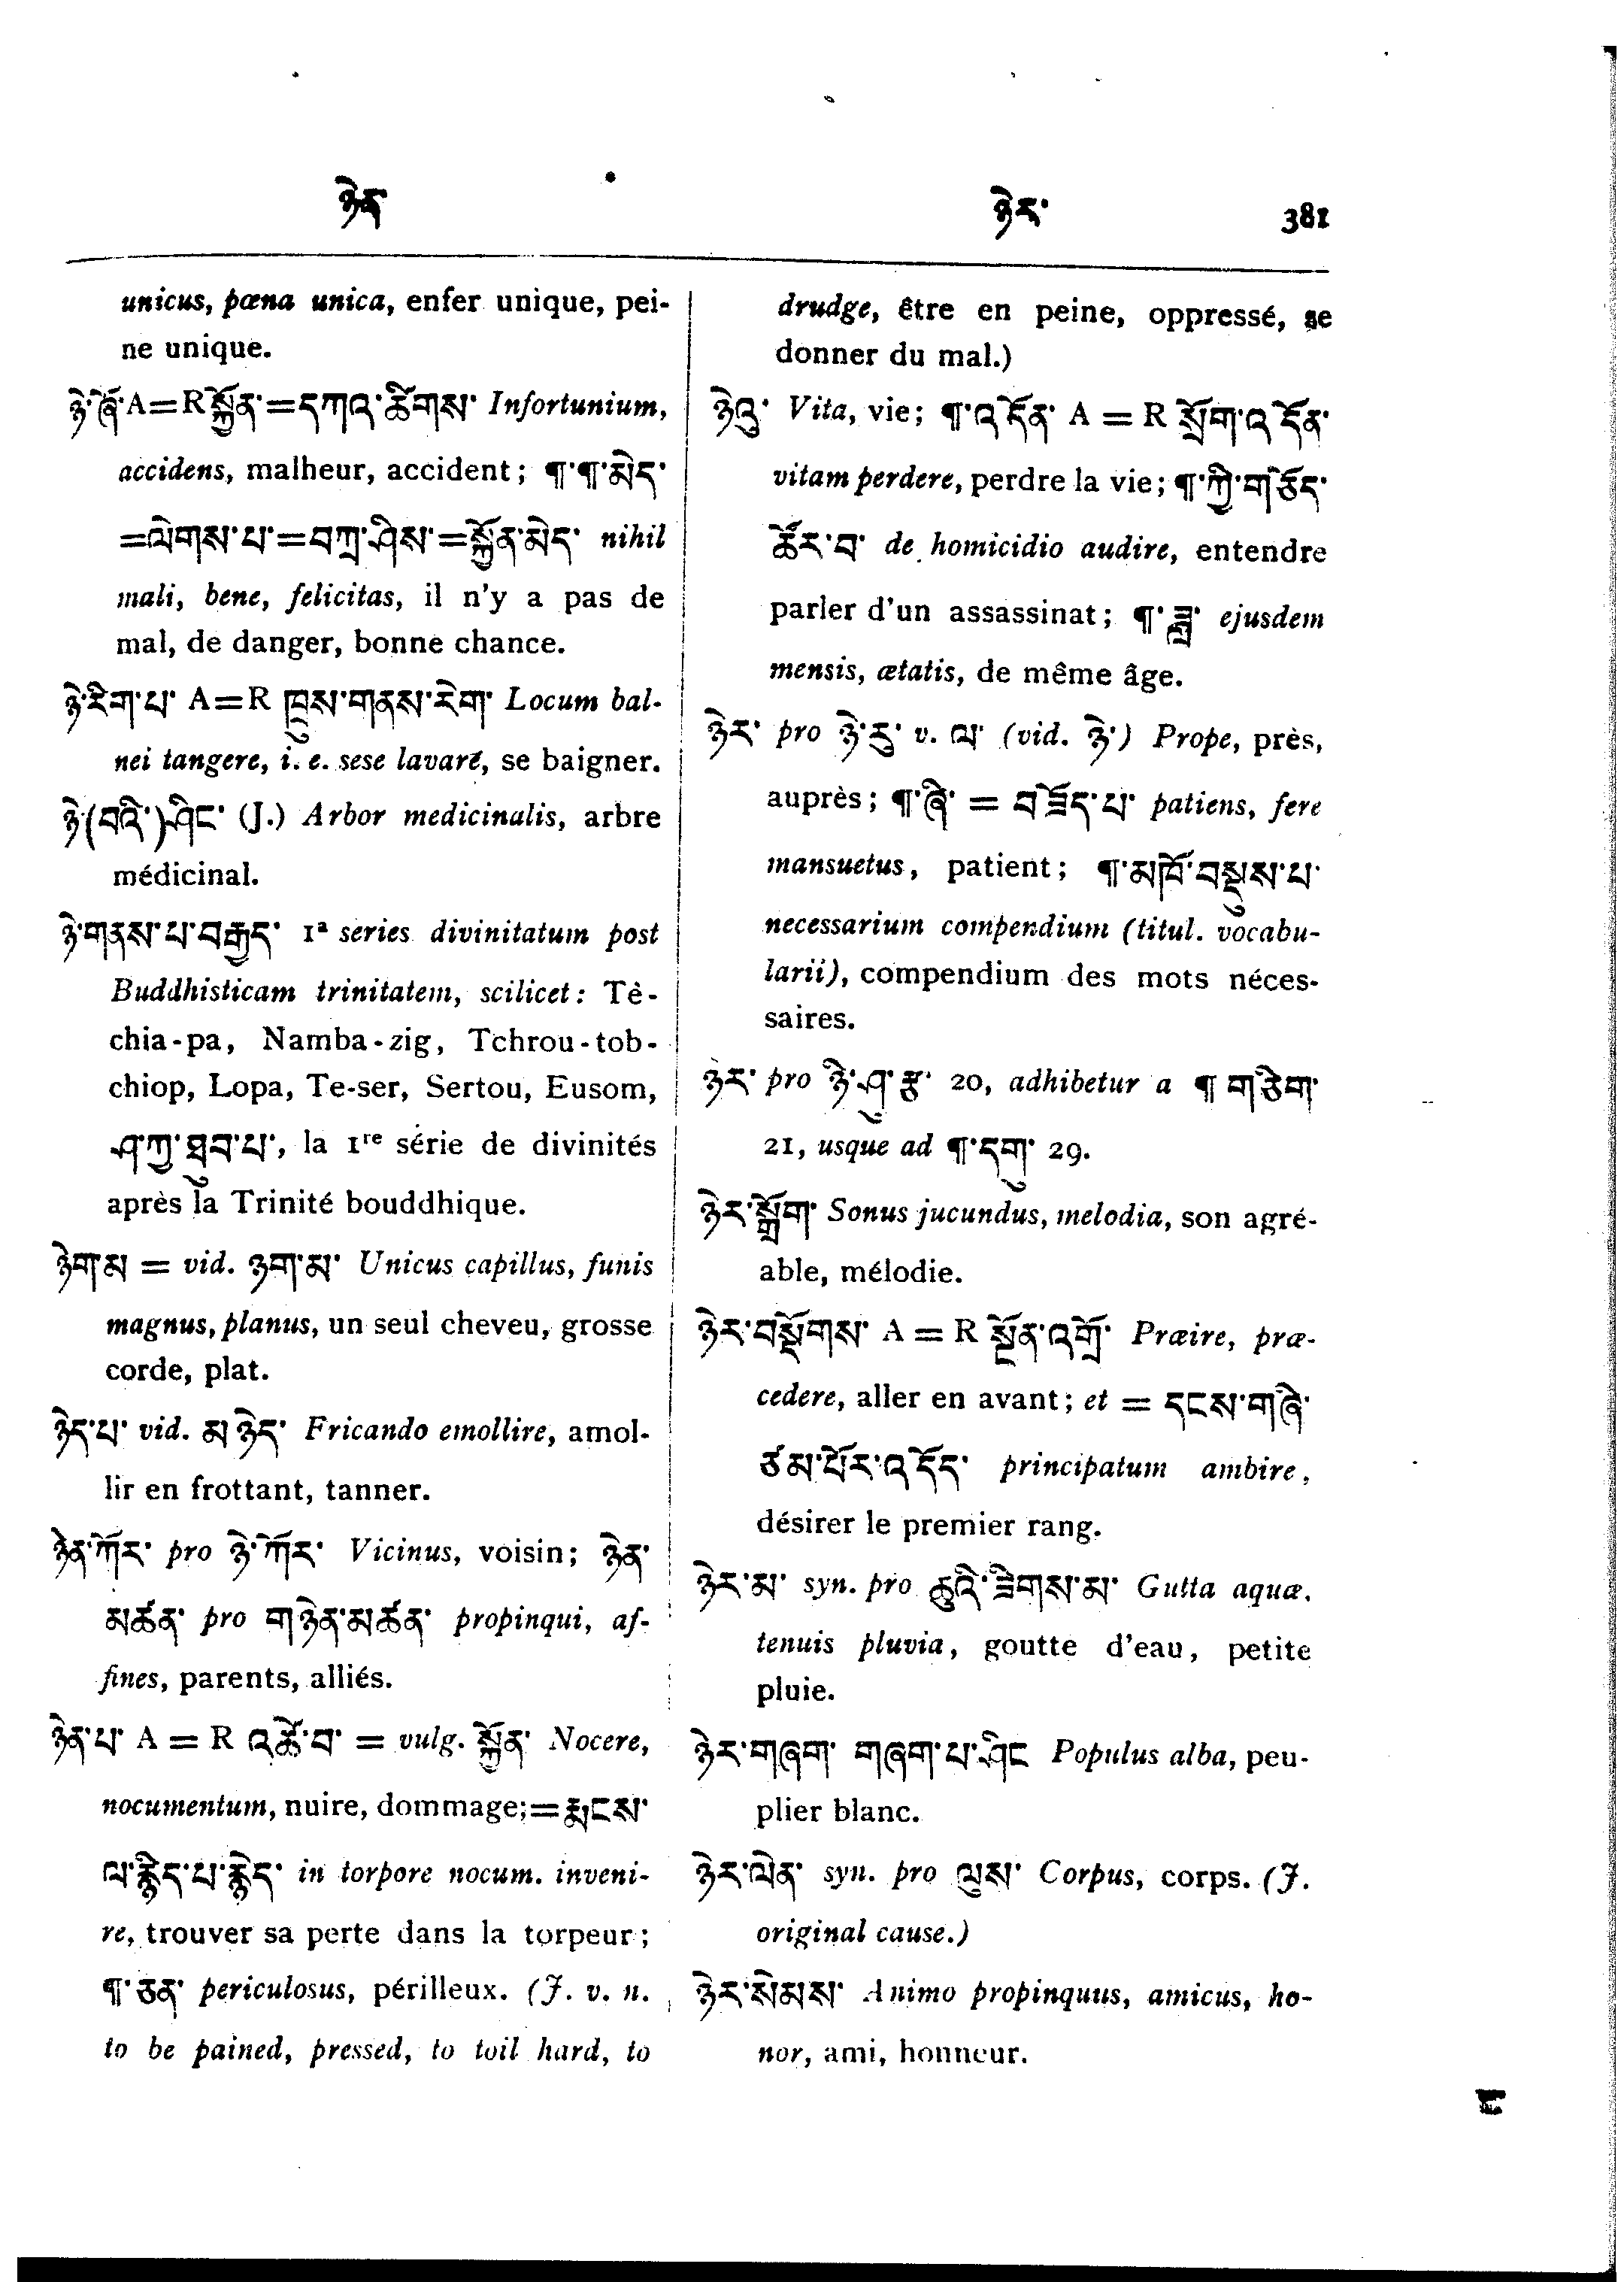 ཉེན
ཉེར་
381
unicus, pœna unica, enfer unique, pei-
ne unique.
ཉེ་ཞོ་ A=R སྐྱོན་=དཀའ་ཚེགས་ Infortunium,
accidens, malheur, accident; ¶་¶་མེད་
=ལེགས་པ་=བཀྲ་ཤིས་=སྐྱོན་མེད་ nihil
mali, bene, felicitas, il n'y a pas de
mal, de danger, bonne chance.
ཉེ་རེག་པ་ A=R ཁྲུས་གནས་རེག་ Locum bal-
nei tangere, i. e. sese lavare, se baigner.
ཉེ་(བའི་)ཤིང་ (J.) Arbor medicinalis, arbre
médicinal.
ཉེ་གནས་པ་བརྒྱད་ 1ª series divinitatum post
Buddhisticam trinitatem, scilicet: Tè-
chia-pa, Namba-zig, Tchrou-tob-
chiop, Lopa, Te-ser, Sertou, Eusom,
ཤ་ཀྱ་ཐུབ་པ་, la 1re série de divinités
après la Trinité bouddhique.
ཉེག་མ = vid. ཉག་མ་ Unicus capillus, funis
magnus, planus, un seul cheveu, grosse
corde, plat.
ཉེད་པ་ vid. མཉེད་ Fricando emollire, amol-
lir en frottant, tanner.
ཉེན་ཀོར་ pro ཉེ་ཀོར་ Vicinus, voisin; ཉེན་
མཚན་ pro གཉེན་མཚན་ propinqui, af-
fines, parents, alliés.
ཉེན་པ་ A = R འཚེ་བ་ = vulg. སྐྱོན་ Nocere,
nocumentum, nuire, dommage;=རྨངས་
ལ་རྙེད་པ་རྙེད་ in torpore nocum. inveni-
re, trouver sa perte dans la torpeur;
¶་ཅན་ periculosus, périlleux. (J. v. n.
to be pained, pressed, to toil hard, to
drudge, être en peine, oppressé, se
donner du mal.)
ཉེའུ་ Vita, vie; ¶་འདོན་ A = R སྲོག་འདོན་
vitam perdere, perdre la vie; ¶་ཀྱི་གཅོད་
ཚོར་བ་ de homicidio audire, entendre
parler d'un assassinat; ¶་ཟླ་ ejusdem
mensis, ætatis, de même âge.
ཉེར་ pro ཉེ་རུ་ v. ལ་ (vid. ཉེ་) Prope, près,
auprès; ¶་ཞི་ = བཟོད་པ་ patiens, fere
mansuetus, patient; ¶་མཁོ་བསྡུས་པ་
necessarium compendium (titul. vocabu-
larii), compendium des mots néces-
saires.
ཉེར་ pro ཉི་ཤུ་རྩ་ 20, adhibetur a ¶ གཅིག་
21, usque ad ¶་དགུ་ 29.
ཉེར་སྒྲོག་ Sonus jucundus, melodia, son agré-
able, mélodie.
ཉེར་བསྡོགས་ A = R སྔོན་འགྲོ་ Præire, præ-
cedere, aller en avant; et = དངས་གཞི་
ཙམ་པོར་འདོད་ principatum ambire,
désirer le premier rang.
ཉེར་མ་ syn. pro ཆུའི་ཟེགས་མ་ Gutta aquæ,
tenuis pluvia, goutte d'eau, petite
pluie.
ཉེར་གཞག་ གཞག་པ་ཤིང Populus alba, peu-
plier blanc.
ཉེར་ལེན་ syn. pro ལུས་ Corpus, corps. (J.
original cause.)
ཉེར་སེམས་ Animo propinquus, amicus, ho-
nor, ami, honneur.